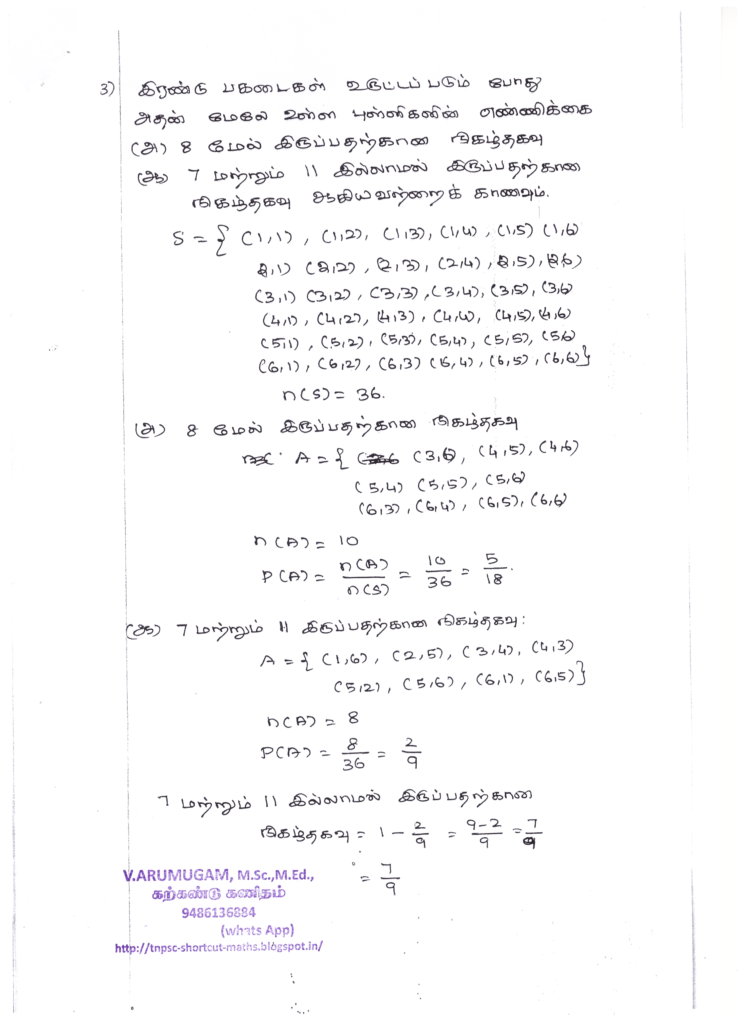 3) இரண்டு பகடைகள் உருட்டப் படும் போது
அதன் மேலே உள்ள புள்ளிகளின் எண்ணிக்கை
(அ) 8 மேல் இருப்பதற்கான நிகழ்தகவு
(ஆ) 7 மற்றும் 11 இல்லாமல் இருப்பதற்கான
நிகழ்தகவு ஆகியவற்றைக் காணவும்.
S = { (1,1), (1,2), (1,3), (1,4), (1,5) (1,6)
2,1) (2,2), (2,3), (2,4), 2,5), (2,6)
(3,1) (3,2), (3,3), (3,4), (3,5), (3,6)
(4,1), (4,2), (4,3), (4,4), (4,5), (4,6)
(5,1), (5,2), (5,3), (5,4), (5,5), (5,6)
(6,1), (6,2), (6,3) (6,4), (6,5), (6,6)}
n(S) = 36.
(அ) 8 மேல் இருப்பதற்கான நிகழ்தகவு
A = { (3,6), (4,5), (4,6)
(5,4) (5,5), (5,6)
(6,3), (6,4), (6,5), (6,6)
n(A) = 10
P(A) = n(A)/n(S) = 10/36 = 5/18.
(ஆ) 7 மற்றும் 11 இருப்பதற்கான நிகழ்தகவு:
A = { (1,6), (2,5), (3,4), (4,3)
(5,2), (5,6), (6,1), (6,5)}
n(A) = 8
P(A) = 8/36 = 2/9
7 மற்றும் 11 இல்லாமல் இருப்பதற்கான
நிகழ்தகவு = 1 - 2/9 = 9-2/9 = 7/9
= 7/9
V.ARUMUGAM, M.Sc.,M.Ed.,
கற்கண்டு கணிதம்
9486136884
(whats App)
http://tnpsc-shortcut-maths.blogspot.in/